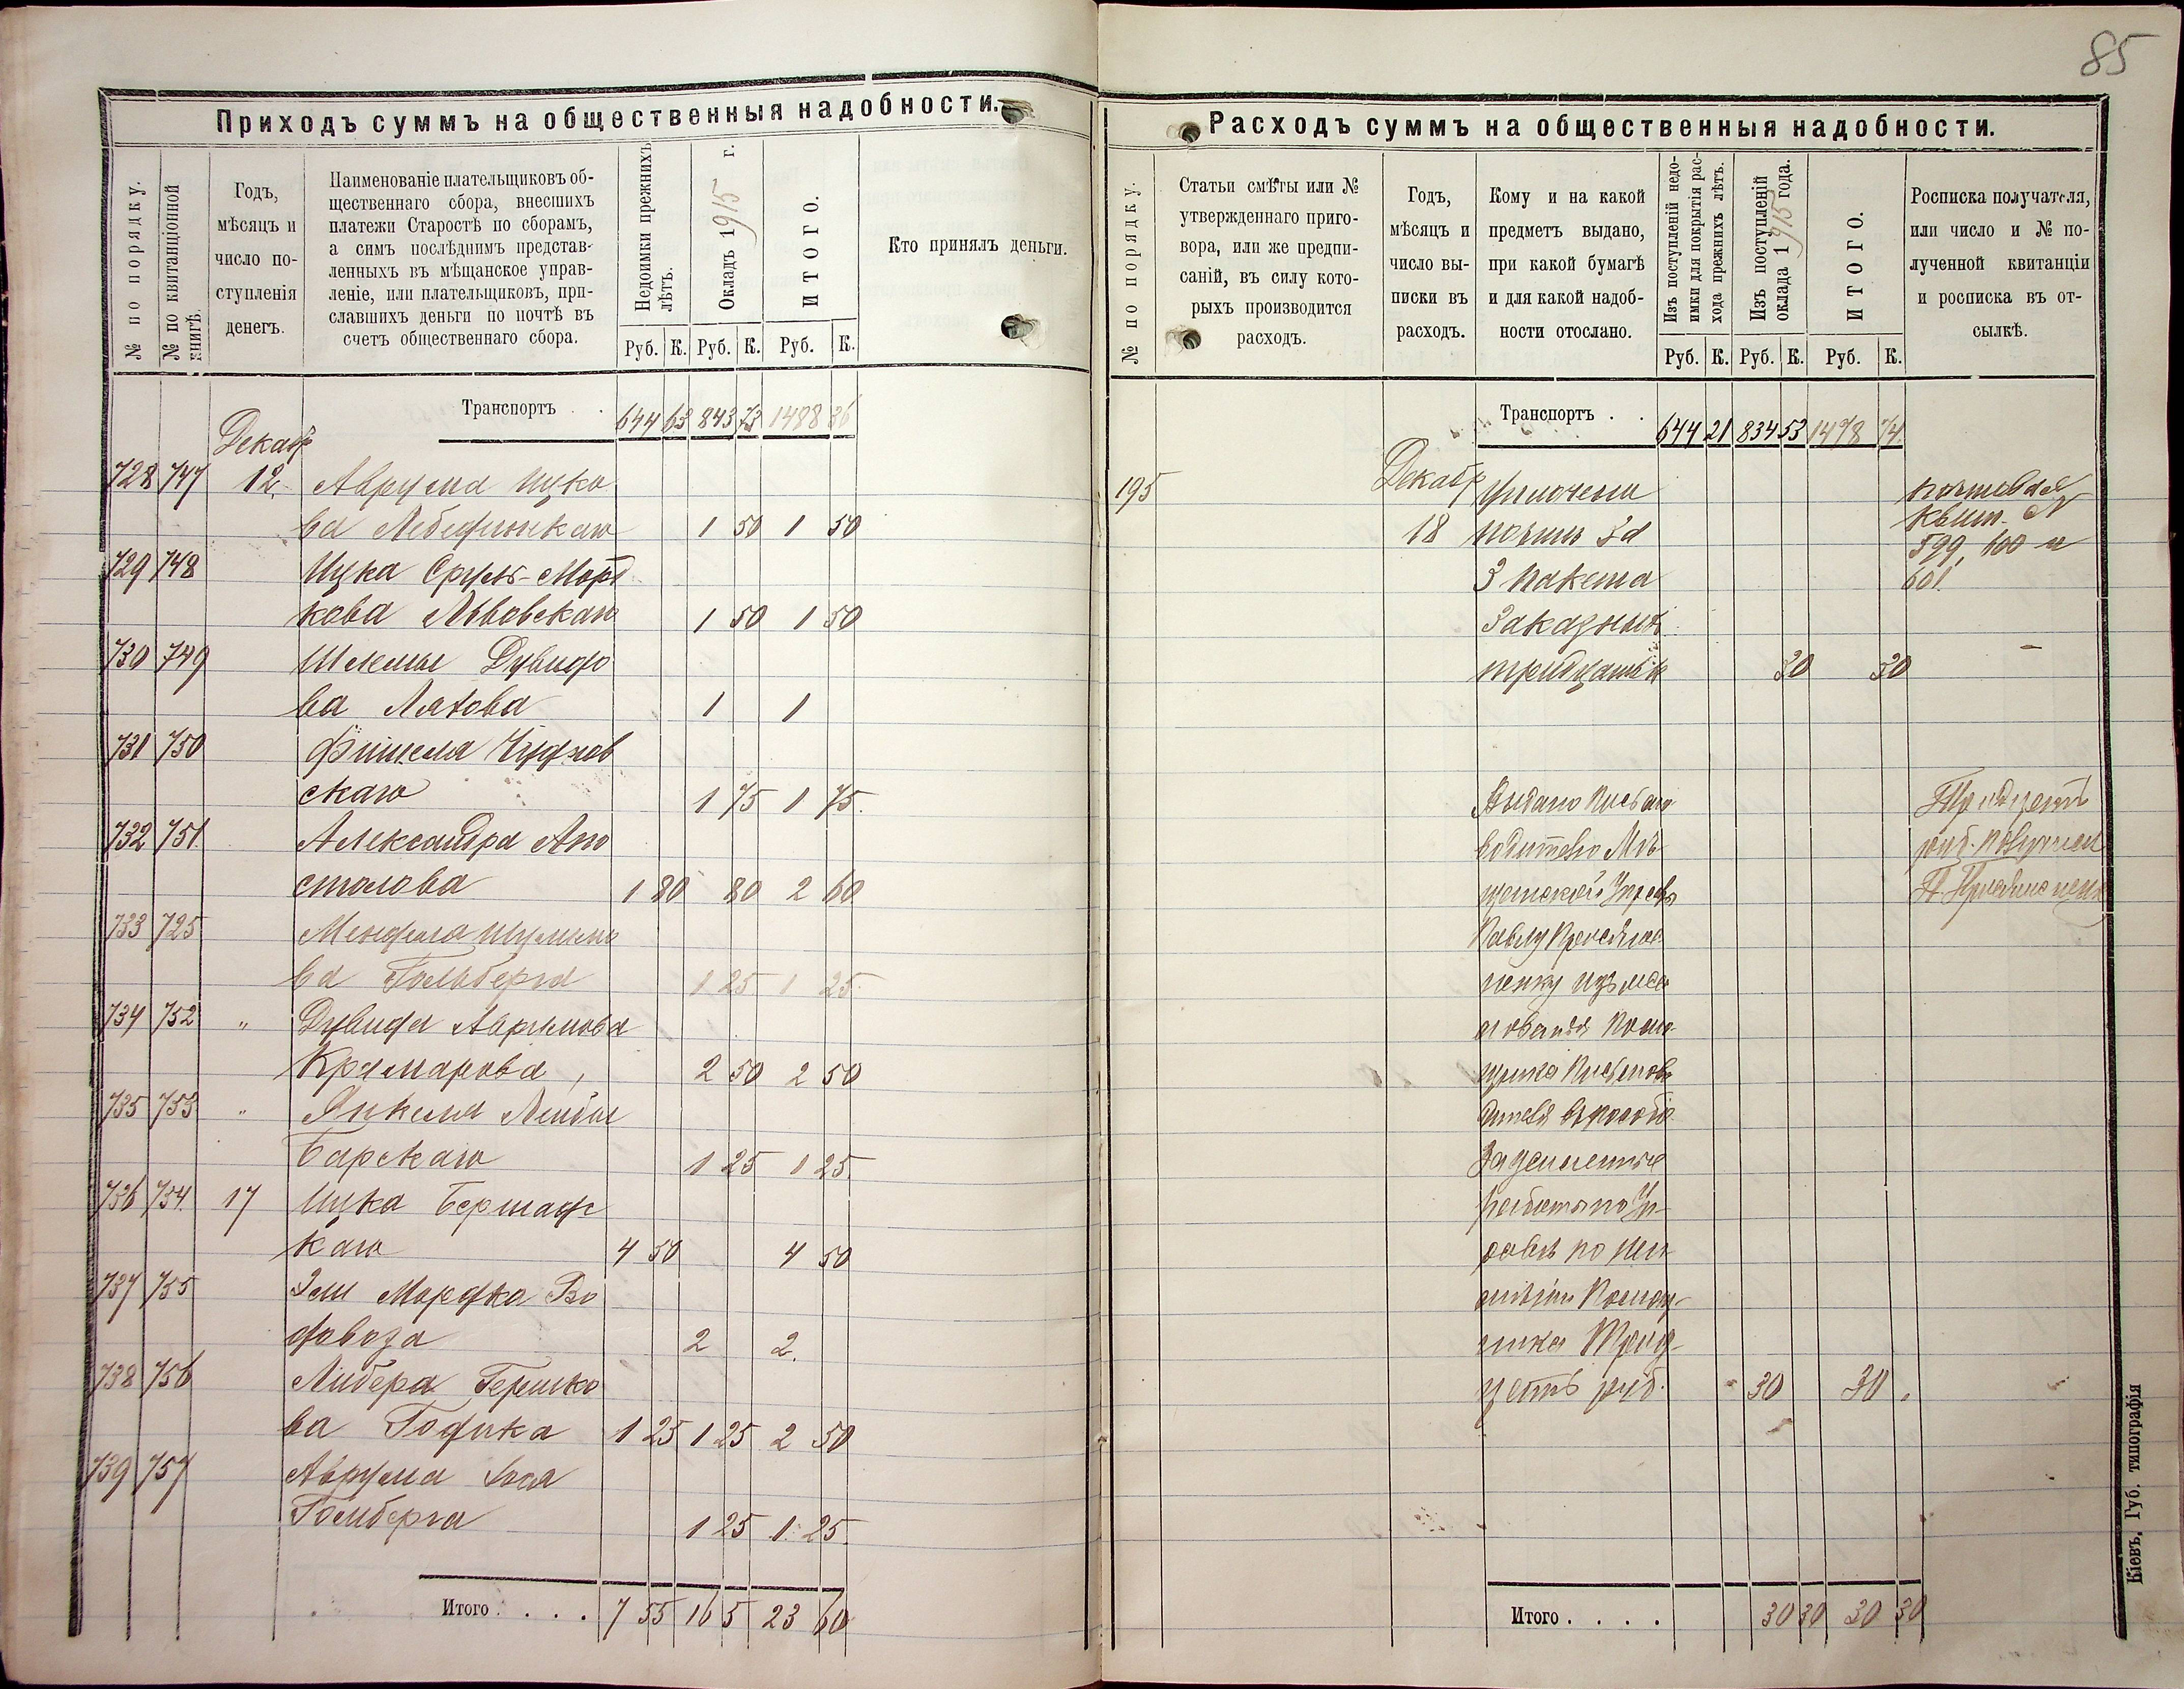 85
Приходъ суммъ на общественныя надобности.
№ по порядку.
№ по квитанціонной книгѣ.
Годъ,
мѣсяцъ и
число по-
ступленія
денегъ.
Наименованіе плательщиковъ об-
щественнаго сбора, внесшихъ
платежи Старостѣ по сборамъ,
а симъ послѣднимъ представ-
ленныхъ въ мѣщанское управ-
леніе, или плательщиковъ, при-
славшихъ деньги по почтѣ въ
счетъ общественнаго сбора.
Недоимки прежнихъ
лѣтъ.
Окладъ 1915 г.
ИТОГО.
Кто принялъ деньги.
Руб. К. Руб. К. Руб. К.
Транспортъ . . 644 63 843 73 1488 36
Декабр
728 747 12. Аврума Ицко
ва Лебединскаго 1 50 1 50
729 748 Ицка Сруль-Морд
кова Львовскаго 1 50 1 50
730 749 Шлемы Дувидо
ва Ляхова 1 1
731 750 Фишеля Чуднов
скаго 1 75 1 75.
732 751. Александра Апо
столова 1 80 80 2 60
733 725 Менделя Шулимо
ва Гольберга 1 25 1 25.
734 752 " Дувида Аврумова
Крамарова 2 50 2 50
735 753 " Янкеля Лейбы
Барскаго 1 25 1 25.
736 754. 17 Ицка Бершад
каго 4 50 4 50
737 755 Эли Мордка Во
довоза 2 2.
738 756 Либера Гершко
ва Годика 1 25 1 25 2 50
739 757 Аврума
Гольберга 1 25 1. 25.
Итого . . . . 7 55 16 5 23 60
Расходъ суммъ на общественныя надобности.
№ по порядку.
Статьи смѣты или №
утвержденнаго приго-
вора, или же предпи-
саній, въ силу кото-
рыхъ производится
расходъ.
Годъ,
мѣсяцъ и
число вы-
писки въ
расходъ.
Кому и на какой
предметъ выдано,
при какой бумагѣ
и для какой надоб-
ности отослано.
Изъ поступленій недо-
имки для покрытія рас-
хода прежнихъ лѣтъ.
Изъ поступленій
оклада 1915 года.
ИТОГО.
Росписка получателя,
или число и № по-
лученной квитанціи
и росписка въ от-
сылкѣ.
Руб. К. Руб. К. Руб. К.
Транспортъ . . 644 21 834 53 1478 74.
195 Декабр Уплочено почтовая
18 почтѣ за квит. №
3 пакета 599, 600 и
заказных 601.
тридцать к 30 30 -
Выдано Письмо Тридцать
водителю Мѣ руб. получил
щанской Управы
Павлу
работы по Уп
равѣ по
Помощ-
ника Трид-
цать руб. 30 30
Итого . . . . 30 30 30 30
Кіевъ. Губ. типографія